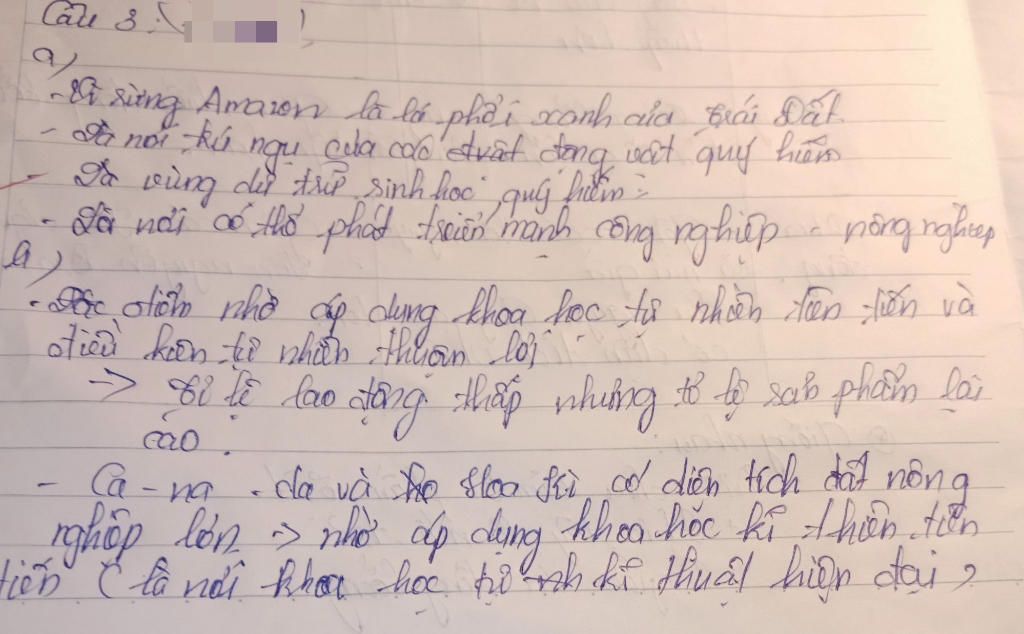 Câu 3: (
a)
- Vì rừng Amazon là lá phổi xanh của trái Đất
- Là nơi trú ngụ của các động vật quý hiếm
- Là vùng dự trữ sinh học quý hiếm
- Là nơi có thể phát triển mạnh công nghiệp - nông nghiệp
b)
- điểm nhờ áp dụng khoa học tự nhiên tiên tiến và
điều kiện tự nhiên thuận lợi
-> Tỉ lệ lao động thấp nhưng tỉ lệ sản phẩm lại
cao.
- Ca-na-da và Hoa Kì có diện tích đất nông
nghiệp lớn -> nhờ áp dụng khoa học kĩ tiên
tiến ( là nơi khoa học kĩ thuật hiện đại )